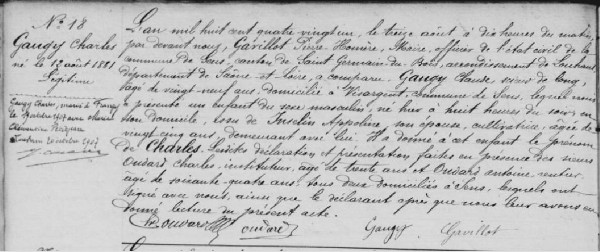 No. 18
Gaugey Charles
né le 12 août 1881
Légitime
L'an mil huit cent quatre vingt un, le treize août à dix heures du matin,
par devant nous, Gavillot Pierre Honoré, Maire, officier de l'état civil de la
commune de Sens, canton de Saint Germain du Bois, arrondissement de Louhans
département de Saône et Loire, a comparu Gaugey Claude scieur de long,
âgé de vingt-neuf ans, domicilié à Visargent, commune de Sens, lequel nous
a présenté un enfant du sexe masculin, né hier à huit heures du soir en
son domicile, issu de Insclin Appoline, son épouse, cultivatrice, âgée de
vingt cinq ans, demeurant avec lui. Il a donné à cet enfant le prénom
de Charles. Lesdites déclaration et présentation faites en présence des sieurs
Oudard Charles instituteur, âgé de trente ans et Oudard Antoine rentier
âgé de soixante quatre ans, tous deux domiciliés à Sens, lesquels ont
signé avec nous, ainsi que le déclarant après que nous leur avons eu
donné lecture du présent acte.
Oudard Oudard Gaugey Gavillot